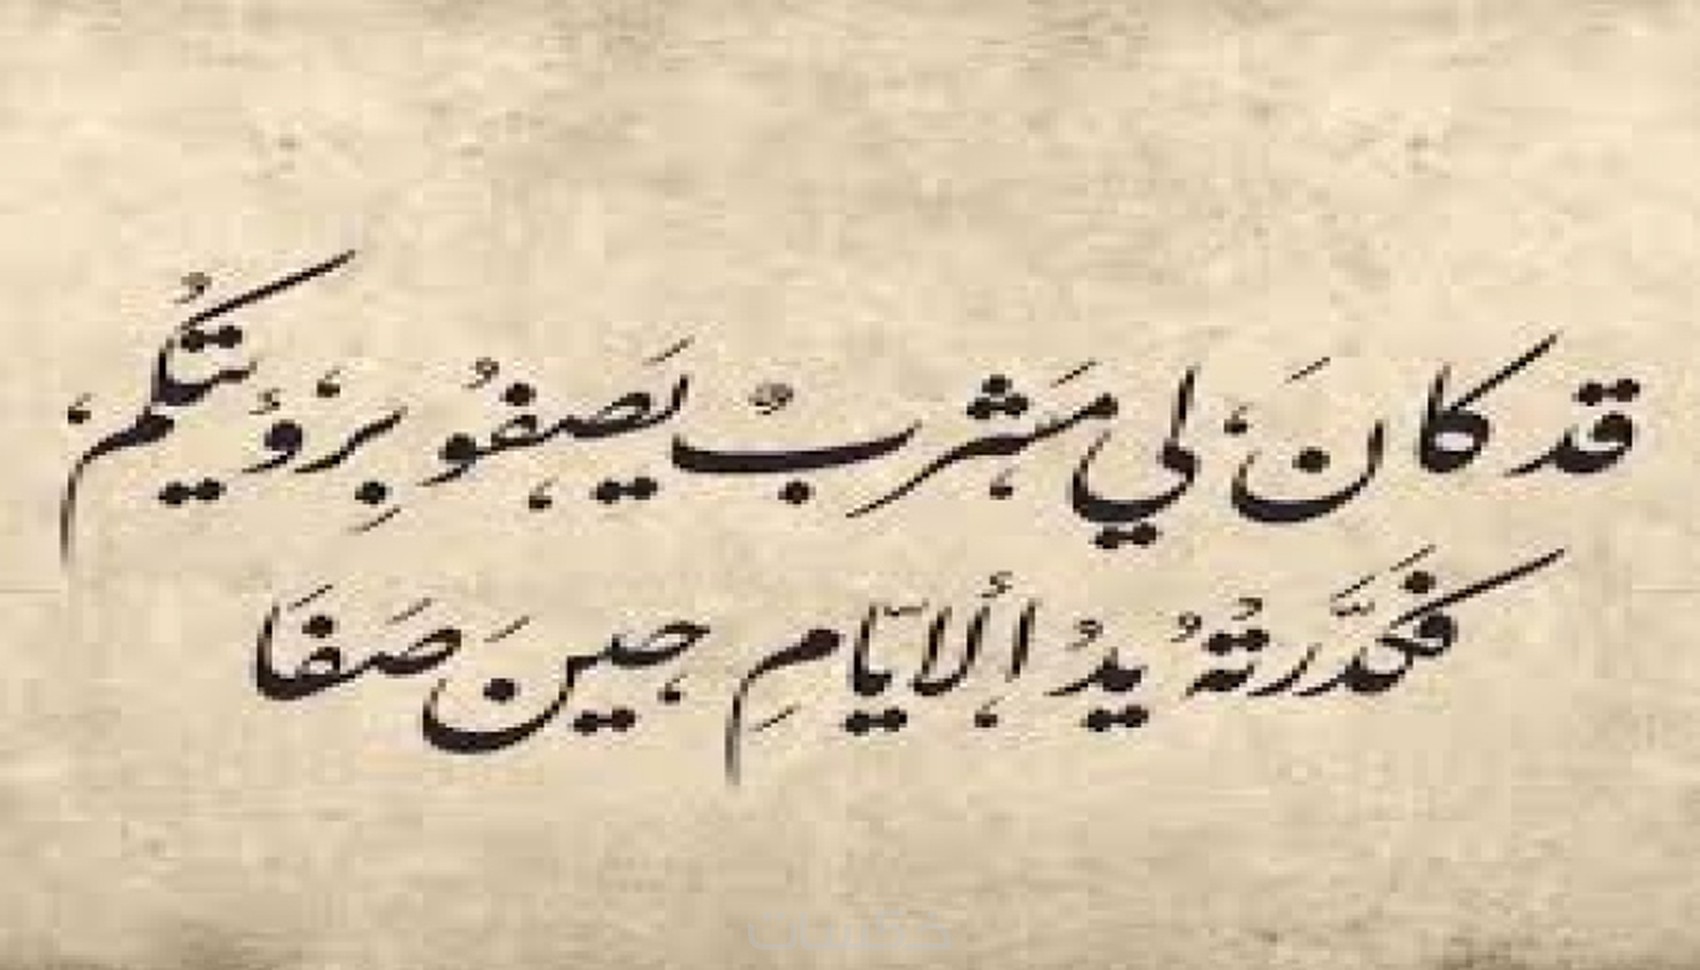 قد كانَ لي مَشربٌ يَصفوُ بِرؤيتكُم
فكَدَّرتهُ يدُ اُلايّامِ حينَ صَفَا
خمسات